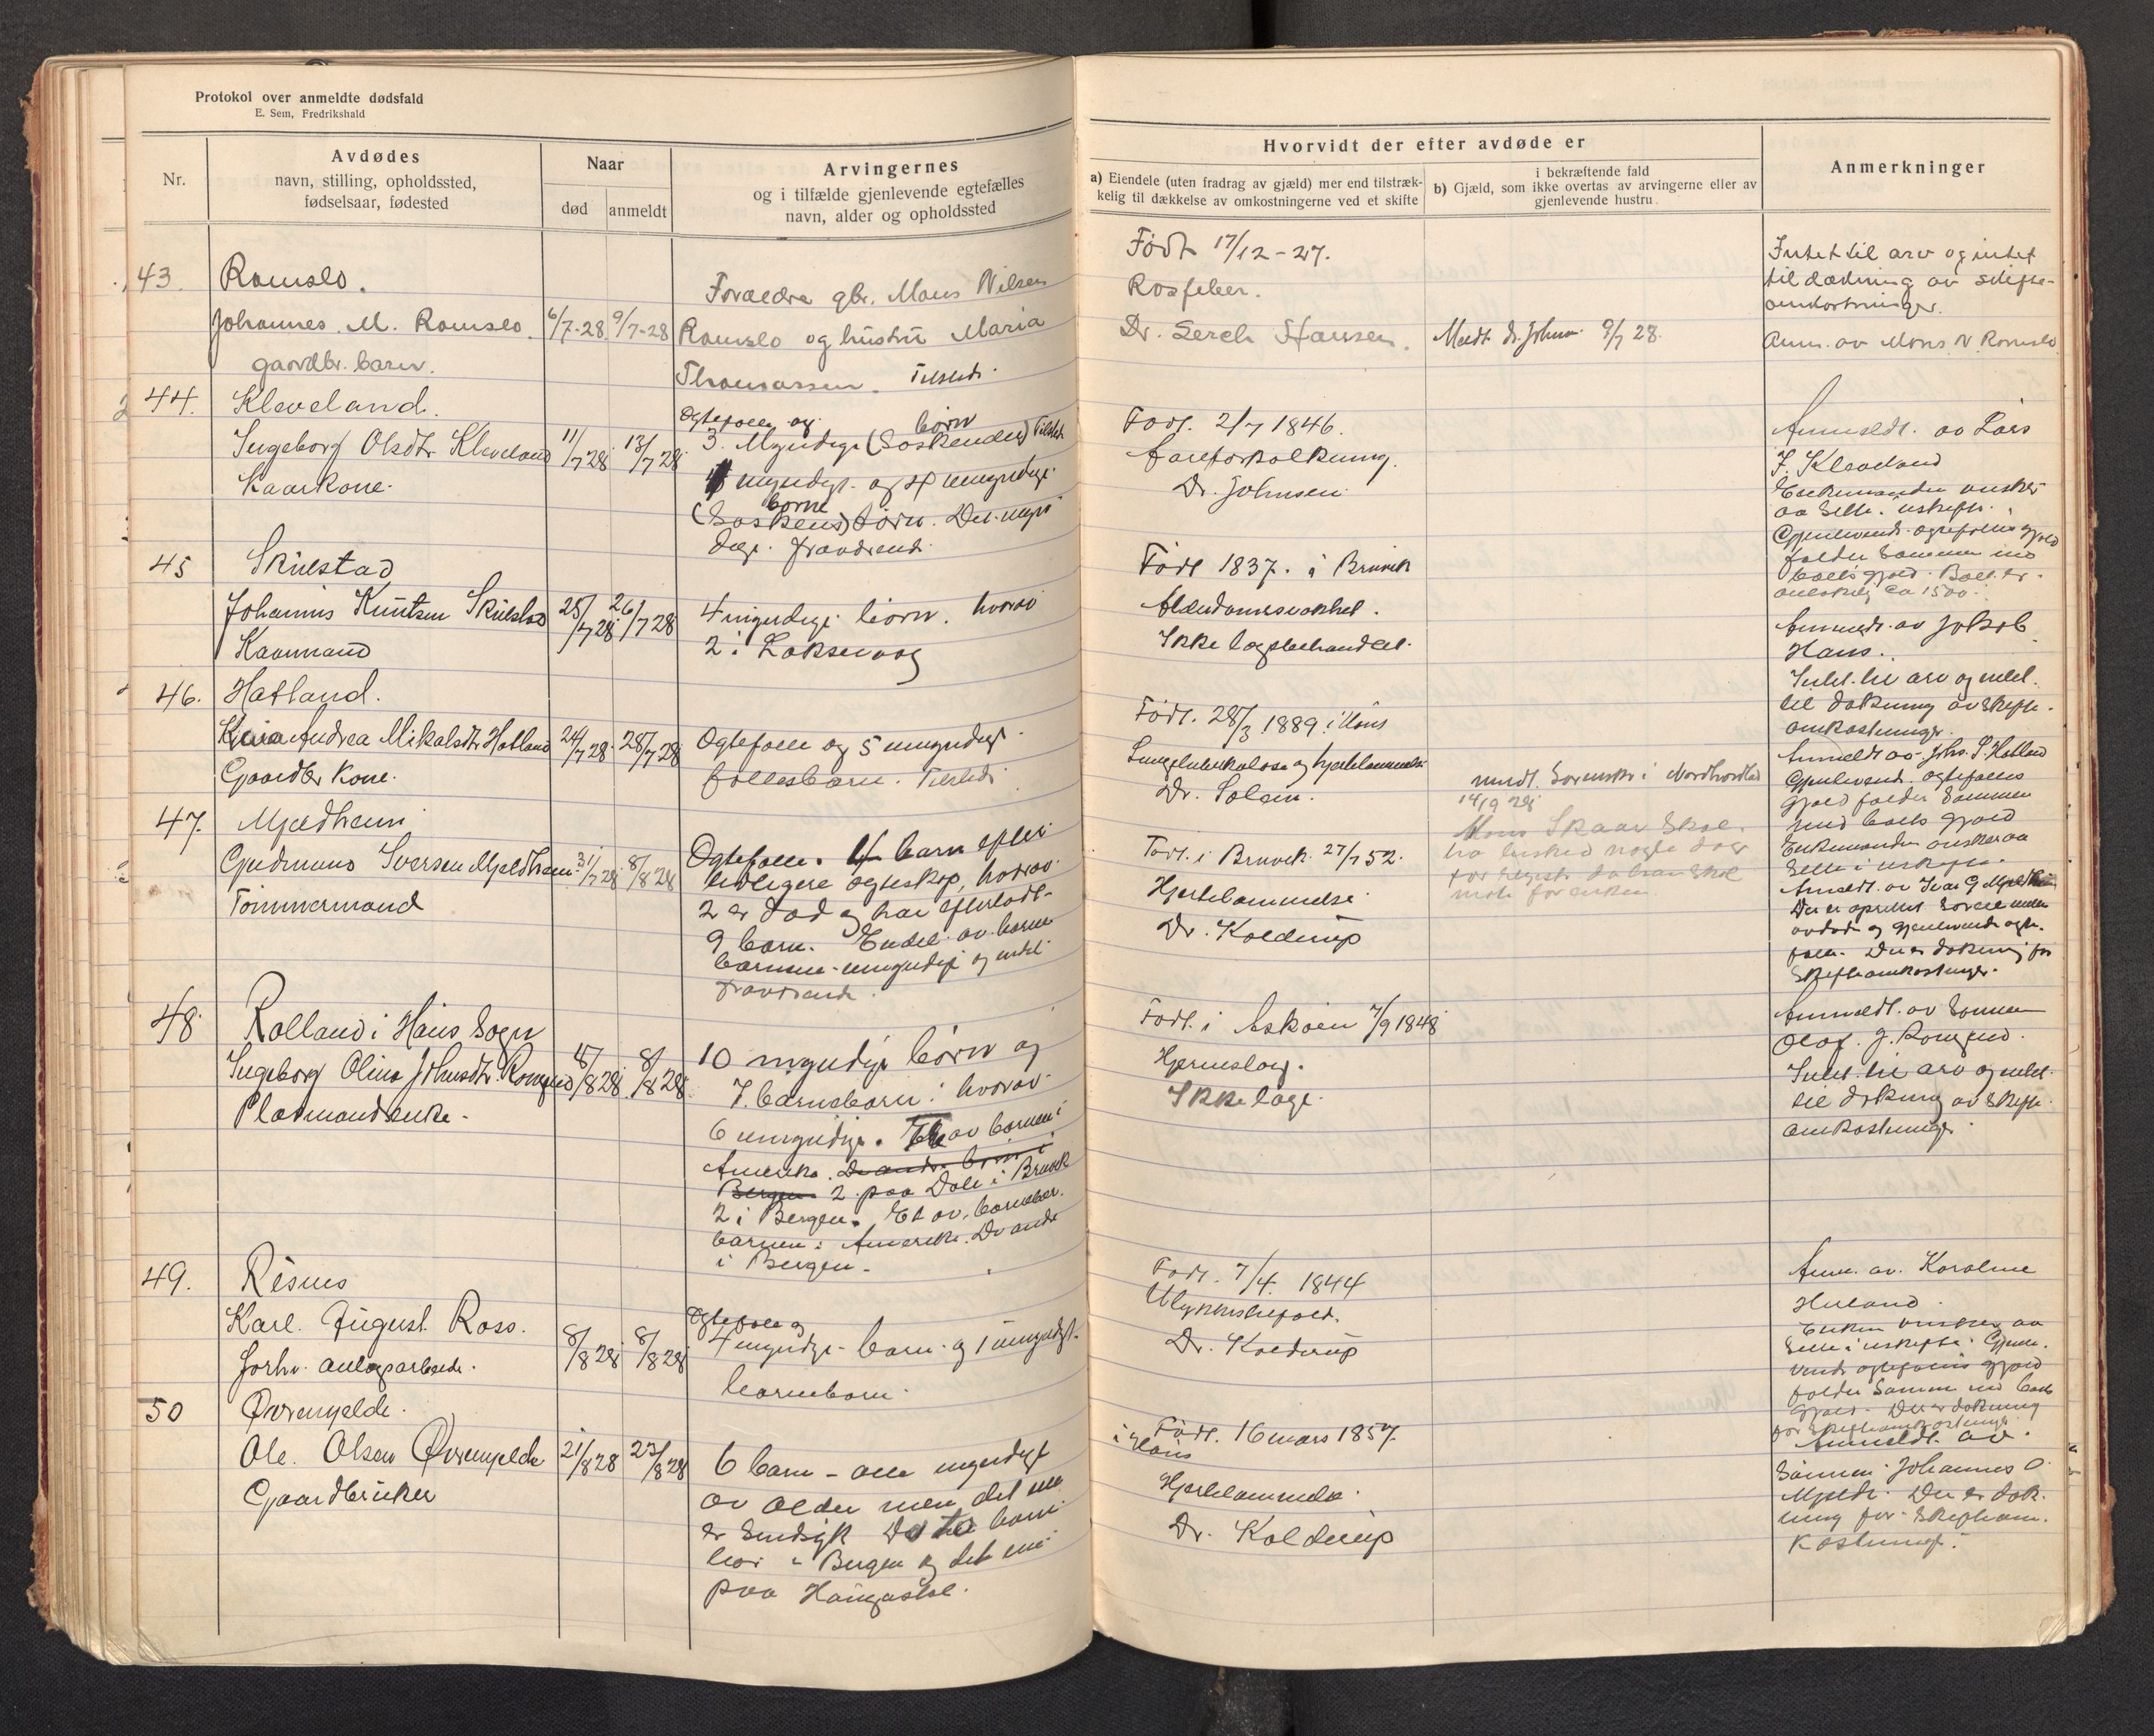 Protokol over anmeldte dødsfald
E. Sem, Fredrikshald
Nr.
Avdødes
navn, stilling, opholdssted,
fødselsaar, fødested
Naar
død
anmeldt
Arvingernes
og i tilfælde gjenlevende egtefælles
navn, alder og opholdssted
Hvorvidt der efter avdøde er
a) Eiendele (uten fradrag av gjæld) mer end tilstræk-
kelig til dækkelse av omkostningerne ved et skifte
i bekræftende fald
b) Gjæld, som ikke overtas av arvingerne eller av
gjenlevende hustru.
Anmerkninger
43. Romslo.
Johannes M. Romslo. 6/7-28. 9/7-28
gaardbr. barn.
Foraeldre gbr. Mons Nilsen
Romslo og hustru Maria
Thomassen. Tilsted.
Født 17/12-27.
Rosfeber.
Dr. Serch Hansen.
Meldt dr. Johnsen 9/7 28.
Intet til arv og intet
til dækning av skifte-
omkostninger.
Anm. av Mons N Romslo
44. Kleveland.
Ingeborg Olsdtr Kleveland 11/7 28 13/7 28
Kaarkone.
Egtefolle og børn
3 Myndige (Søskende) Tilsted
myndige og 4 umyndige
børne
(Søskens) børn. De umyn
dige fraværende
Født. 2/7 1846.
Aareforkalkning.
Dr. Johnsen
Anmeldt. av Lars
J. Kleveland
Enkemanden ønsker
aa sitte i uskifte.
Gjenlevende egtefolles gjæld
falder sammen med
boets gjæld. Boet er
ca 1500.
45 Skulstad
Johannis Knutsen Skulstad 25/7 28 26/7 28
Kaarmand
4 myndige børn. hvorav
2 i Laksevaag
Født 1837. i Bruvik
Alderdomssvakhet.
Ikke lægebehandlet.
Anmeldt av Jakob
Haus.
Intet til arv og intet
til dækning av skifte-
omkostninger.
46. Hatland.
Andrea Mikalsdtr Hatland 24/7 28 28/7 28
Gaardbr Kone.
Egtefolle og 5 umyndige
follesbarn. Tilsted
Født. 28/3 1889 i Haus
Lungetuberkulose og hjertelammelse
Dr. Solem.
meldt Sorensk. i Nordhordland
14/9 28
Anmeldt av Johs. S. Hatland
Gjenlevende egtefolles
gjæld falder sammen
med boets gjæld
Enkemanden ønsker aa
sitte i uskifte.
47. Mjeldheim
Gudmund Iversen Mjeldheim 31/7 28 8/8 28
Tømmermand
Egtefolle. 4 barn efter
tidligere egteskap, hvorav
2 er død og har efterladt
9 barn. Endel av barne
barnene umyndige og endel
fraværende.
Født. i Bruvik 27/7 52.
Hjertelammelse
Dr. Kolderup
Mons Skaar skal
ha beskeed nogle dager
før registr. da han skal
møte for enken
Anmeldt av Ivar G Mjeldheim
Der er oprettet særeie mellem
avdøde og gjenlevende egte-
folle. Der er dækning for
skifteomkostninger.
48 Rolland i Haus Sogn
Ingeborg Olina Johnsdtr. 8/8 28. 8/8 28.
Pladsmandsenke.
10 myndige børn og
7. barnebarn. hvorav
6 umyndige. av barnene i
Amerika. De andre børn i
Bergen 2 paa Dale i Bruvik
2 i Bergen. Et av barnebar-
barnene i Amerika. De andre
i Bergen.
Født. i Askøen 7/9 1848
Hjerneslag.
Ikke læge.
Anmeldt. av Sønnen
Olaf. J.
Intet til arv og intet
til dækning av skifte-
omkostninger.
49. Risnes
Karl. August. Ross. 8/8 28 8/8 28
Forhv. anlægsarbeider.
Egtefolle og
4 myndige barn og 1 umyndigt
barnebarn.
Født. 7/4. 1844
Ulykkestilfæld.
Dr. Kolderup
Anm. av. Karoline
Enken ønsker aa
sitte i uskifte. Gjenle-
vende egtefolles gjæld
falder sammen med boets
gjæld. Der er dækning
for skifteomkostninger.
50 Øvremjelde.
Ole. Olsen Øvremjelde 21/8 28 23/8 28
Gaardbruker
6 barn - alle myndige
av alder men det ene
er sindsyk De to barn
bor i Bergen og det ene
paa Haugastøl.
Født. 16 mars 1857.
i Haus
Hjertelammelse.
Dr. Kolderup
Anmeldt. av
Sønnen Johannes O
Mjelde. Der er dæk-
ning for skifteom-
kostninger.